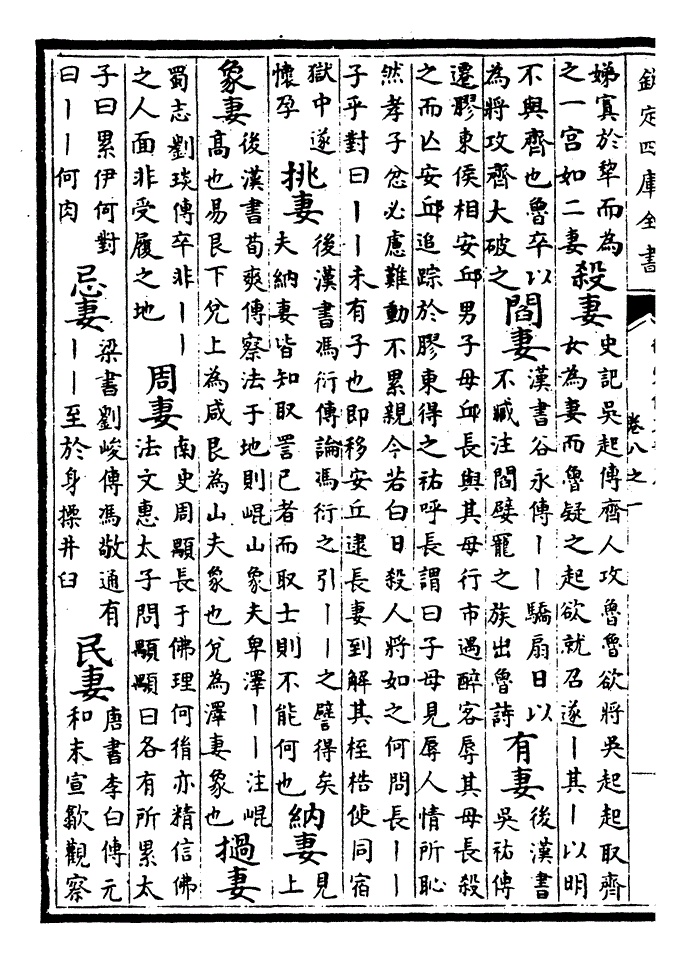 欽定四庫全書
卷八之一
娣寘於犂而為
之一宫如二妻
殺妻
史記吳起傳齊人攻魯魯欲將吳起起取齊
女為妻而魯疑之起欲就召遂丨其丨以明
不與齊也魯卒以
為將攻齊大破之
閻妻
漢書谷永傳丨丨驕扇日以
不臧注閻嬖寵之族出魯詩
有妻
後漢書
吳祐傳
遷膠東侯相安邱男子母邱長與其母行市遇醉客辱其母長殺
之而亡安邱追踪於膠東得之祐呼長謂曰子母見辱人情所恥
然孝子忿必慮難動不累親今若白日殺人將如之何問長丨丨
子乎對曰丨丨未有子也即移安丘逮長妻到解其桎梏使同宿
獄中遂
懷孕
挑妻
後漢書馮衍傳論馮衍之引丨丨之譬得矣
夫納妻皆知取詈已者而取士則不能何也
納妻
見
上
象妻
後漢書荀爽傳察法于地則崐山象夫卑澤丨丨注崐
髙也易艮下兌上為咸艮為山夫象也兌為澤妻象也
撾妻
蜀志劉琰傳卒非丨丨
之人面非受履之地
周妻
南史周顒長于佛理何㣧亦精信佛
法文惠太子問顒顒曰各有所累太
子曰累伊何對
曰丨丨何肉
忌妻
梁書劉峻傳馮敬通有
丨丨至於身操井臼
民妻
唐書李白傳元
和末宣歙觀察